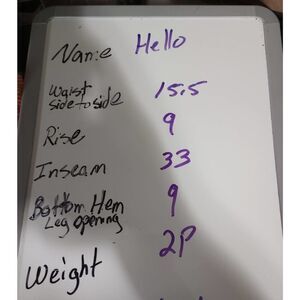 Name Hello
Waist 15.5
side to side
Rise 9
Inseam 33
Bottom Hem 9
Leg opening
Weight 2P